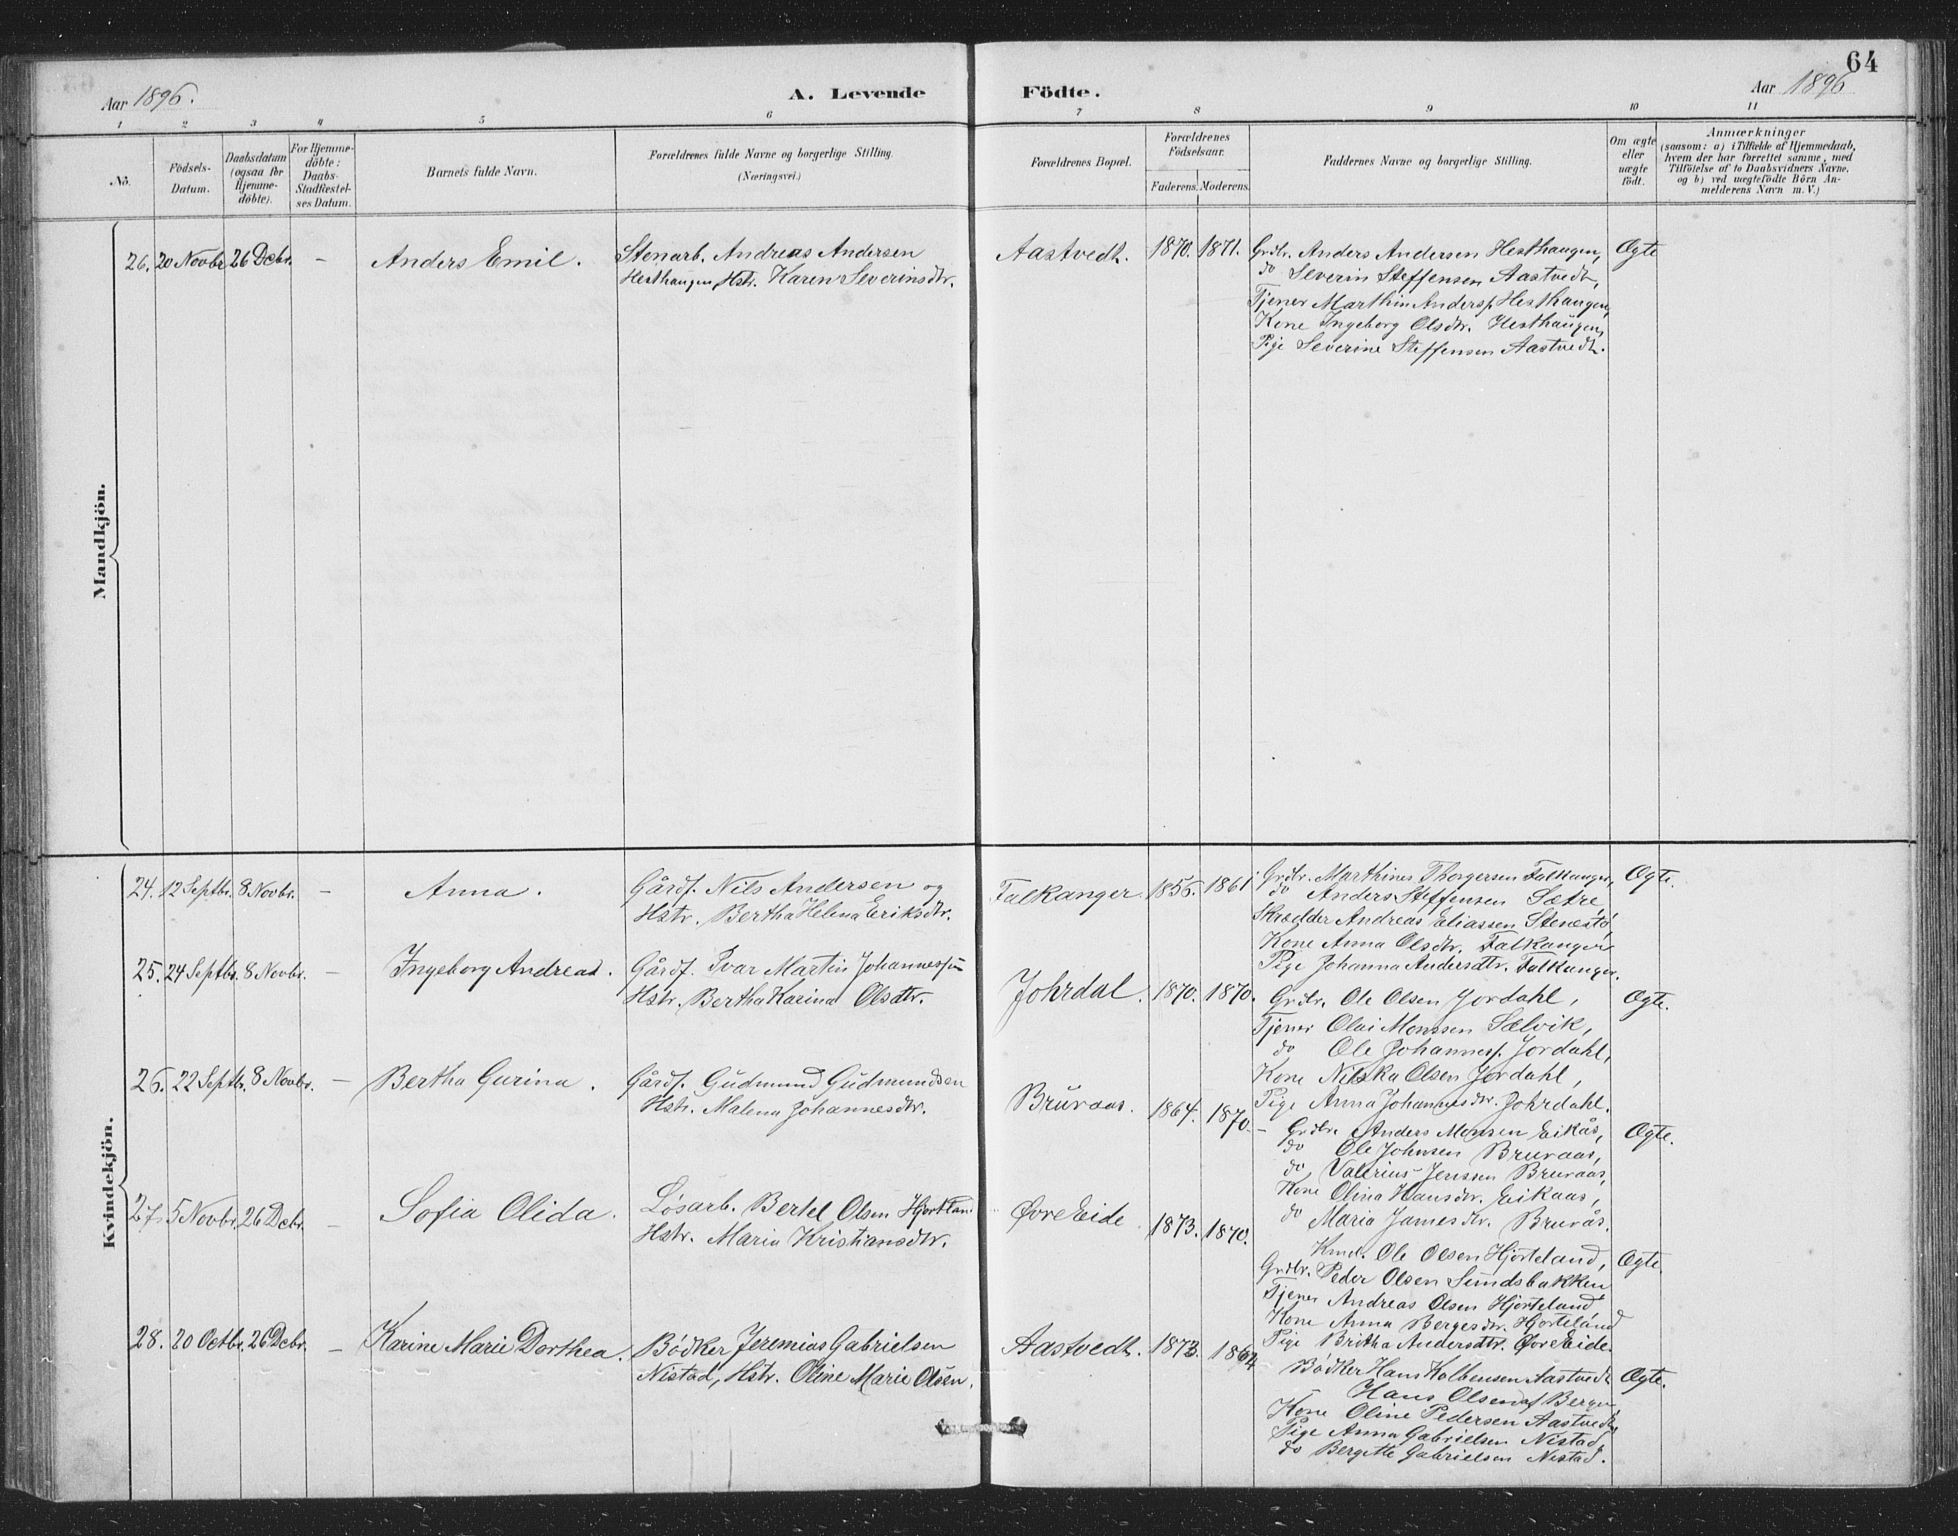 64
Aar 1896.
A. Levende Födte.
Aar 1896
1 2 3 4 5 6 7 8 9 10 11
No.
Födsels-
Datum.
Daabsdatum
(ogsaa for
Hjemme-
döbte).
For Hjemme-
döbte:
Daabs-
Stadfæstel-
ses Datum.
Barnets fulde Navn.
Forældrenes fulde Navne og borgerlige Stilling.
(Næringsvei.)
Forældrenes Bopæl.
Forældrenes
Födselsaar.
Faderens. Moderens.
Faddernes Navne og borgerlige Stilling.
Om ægte
eller
uægte
födt.
Anmærkninger
(saasom: a) i Tilfælde af Hjemmedaab,
hvem der har forrettet samme, med
Tilföielse af to Daabsvidners Navne,
og b) ved uægtefödte Börn An-
melderens Navn m. V.)
Mandkjön.
26. 20 Novbr 26 Dcbr. - Anders Emil.
Stenarb. Andreas Andersen
Hesthaugen, Hstr. Karen Severinsdtr.
Aastvedt. 1870. 1871.
Grdbr. Anders Andersen Hesthaugen,
do Severin Steffensen Aastvedt,
Tjener Marthin Andersp. Hesthaugen,
Kone Ingeborg Olsdtr. Hesthaugen,
Pige Severine Steffensen Aastvedt.
Ægte
Kvindekjön.
24. 12 Septbr. 8 Novbr. - Anna.
Gårdf. Nils Andersen og
Hstr. Bertha Helena Eriksdtr.
Falkanger 1856. 1861
Grdbr. Marthines Thorgersen Falkanger,
do Anders Steffensen Sætre
Skrædder Andreas Eliassen Stenestø,
Kone Anna Olsdtr. Falkanger
Pige Johanna Andersdtr. Falkanger.
Ægte.
25. 24 Septbr. 8 Novbr. - Ingeborg Andrea.
Gårdf. Ivar Martin Johannessen
Hstr. Bertha Karina Olsdtr.
Johrdal. 1870. 1870.
Grdbr. Ole Olsen Jordahl,
Tjener Olai Monssen Sælvik,
do Ole Johannesp. Jordahl,
Kone Nilska Olsen Jordahl,
Pige Anna Johannesdtr. Johrdahl.
Ægte.
26. 22 Septbr. 8 Novbr. - Bertha Gurina.
Gårdf. Gudmund Gudmundsen
Hstr. Malena Johannesdtr.
Bruvaas. 1864. 1870.
- Grdbr. Anders Monsen Eikås,
do Ole Johnsen Bruvaas,
do Valerius Jenssen Bruvaas,
Kone Olina Hansdtr. Eikaas,
do Maria Jamesdtr. Bruvås.
Ægte.
27. 5 Novbr. 26 Dcbr. - Sofia Olida.
Løsarb. Bertel Olsen Hjortland
Hstr. Maria Kristiansdtr.
Øvre Eide 1873. 1870.
Kmd. Ole Olsen Hjorteland,
Grdbr. Peder Olsen Sundsbakken
Tjener Andreas Olsen Hjorteland
Kone Anna Bergesdtr. Hjorteland
Pige Britha Andersdtr. Øvre Eide.
Ægte.
28. 20 Octbr. 26 Dcbr. - Karine Marie Dorthea.
Bödker Jeremias Gabrielsen
Nistad, Hstr. Oline Marie Olsen.
Aastvedt. 1873. 1864
Bödker Hans Kolbensen Aastvedt
Hans Olsen af Bergen
Kone Oline Pedersen Aastvedt,
Pige Anna Gabrielsen Nistad,
do Bergitte Gabrielsen Nistad.
Ægte.